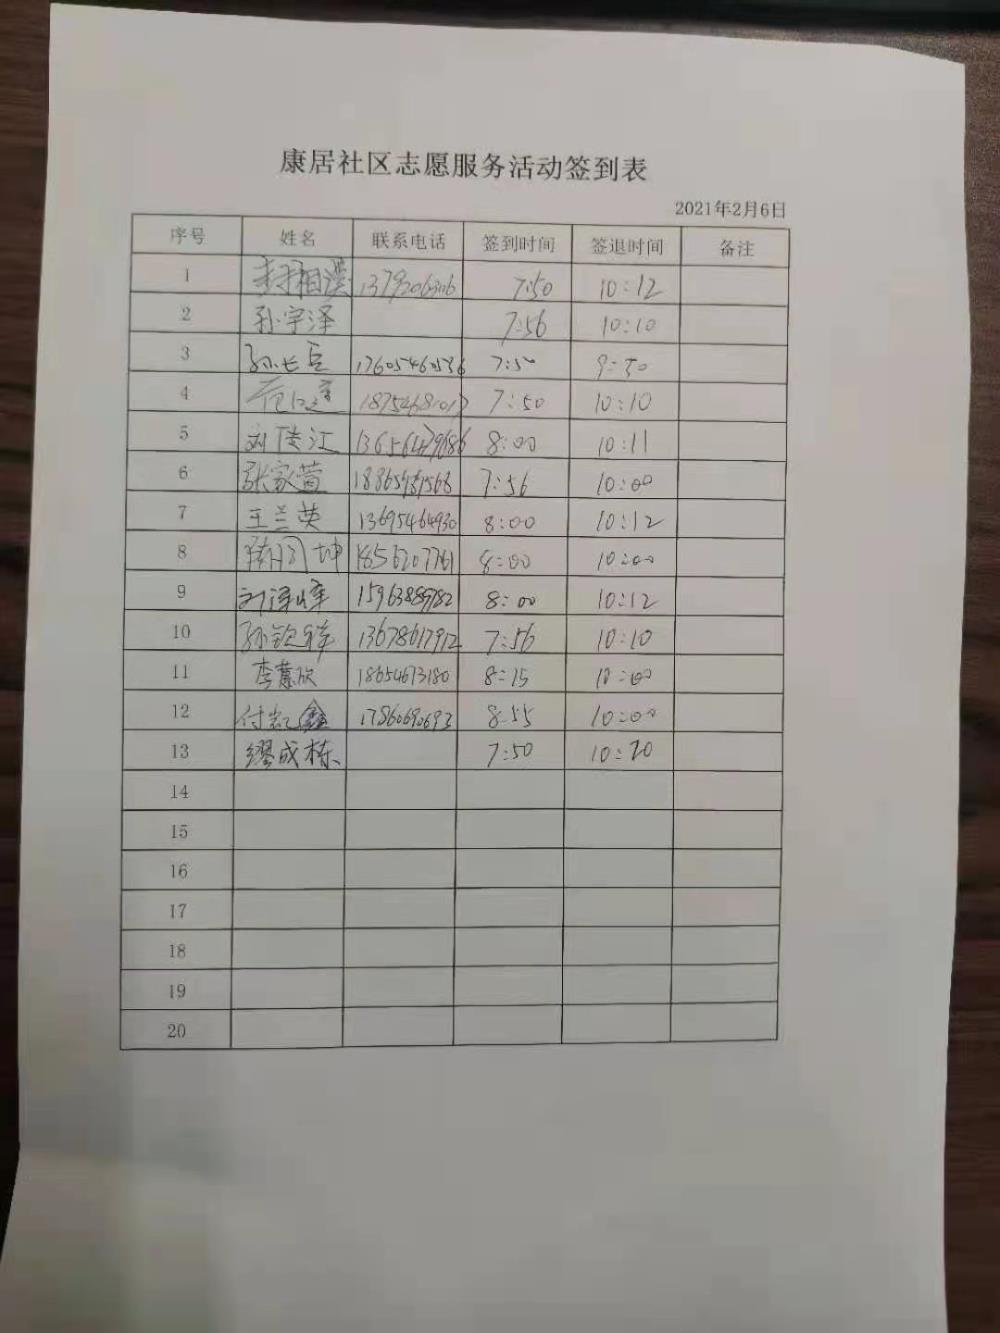 康居社区志愿服务活动签到表
2021年2月6日
序号 姓名 联系电话 签到时间 签退时间 备注
1 7:50 10:12
2 孙宇泽 7:56 10:10
3 17605460586 7:50 9:50
4 7:50 10:10
5 刘俊江 8:00 10:11
6 张家萱 7:56 10:00
7 王兰英 13695464930 8:00 10:12
8 18562077761 8:00 10:00
9 15963889782 8:00 10:12
10 孙钦祥 13678617912 7:56 10:10
11 李慧欣 18654673180 8:15 10:00
12 17860690693 8:55 10:00
13 缪成栋 7:50 10:20
14
15
16
17
18
19
20